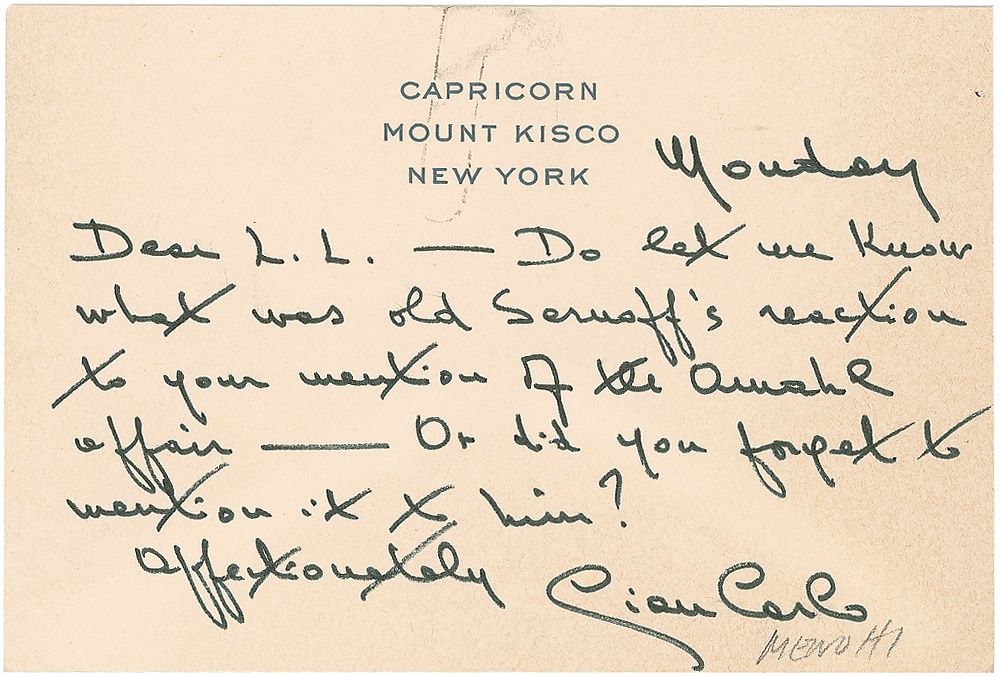 CAPRICORN
MOUNT KISCO
NEW YORK
Monday
Dear L. L. — Do let me know
what was old Sarnoff's reaction
to your mention of the Amahl
affair — Or did you forget to
mention it to him?
affectionately
Gian Carlo
MENOTTI